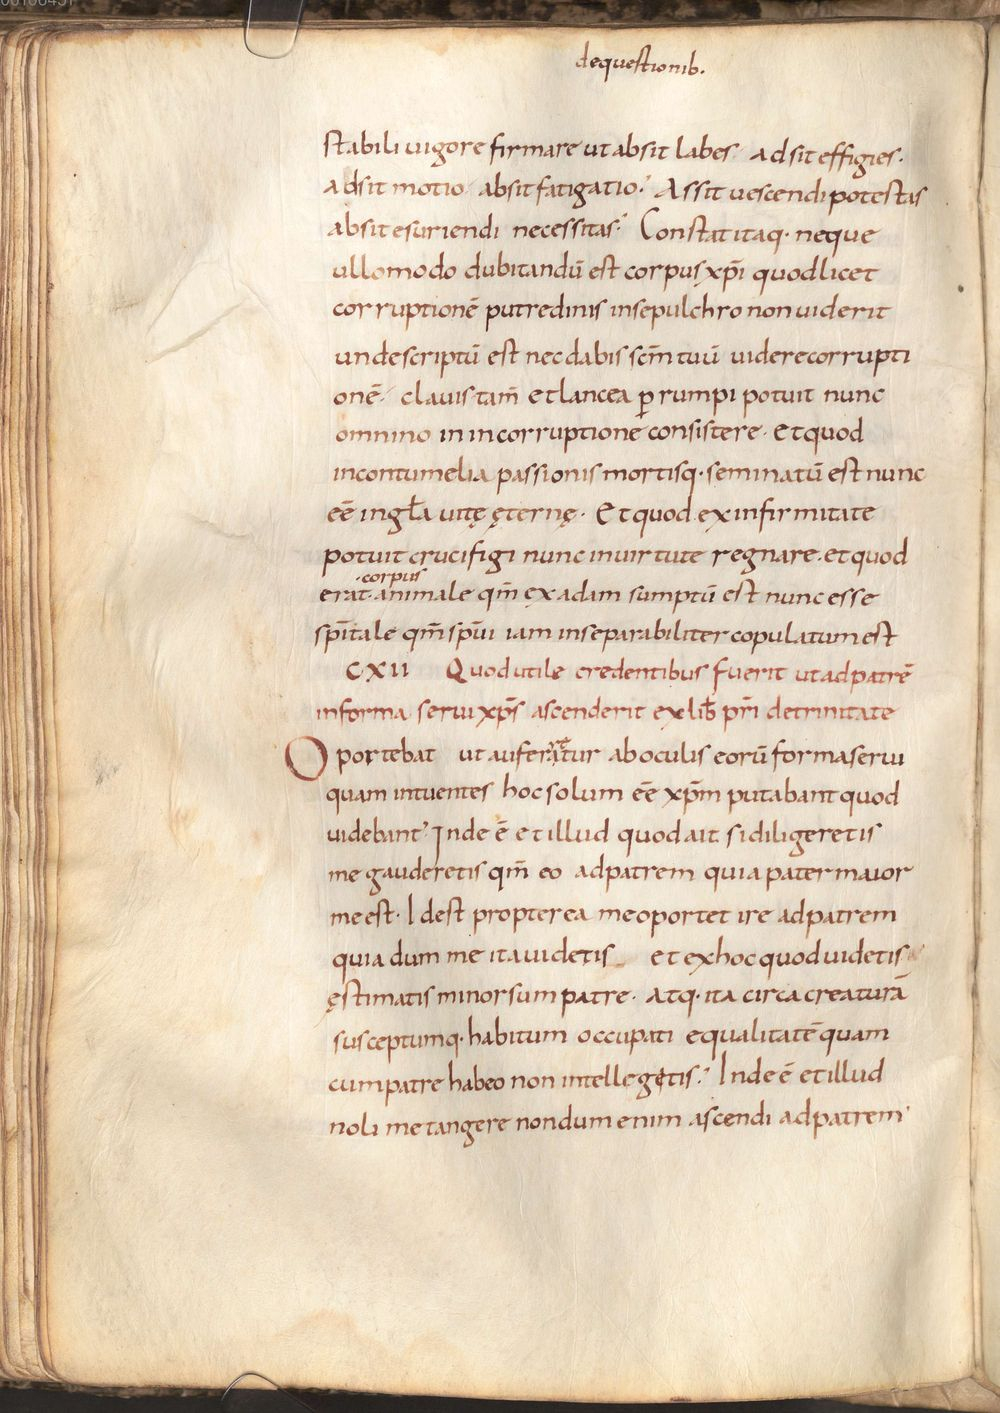 de questionib.
stabili uigore firmare ut absit labes. adsit effigies.
adsit motio absit fatigatio. Assit uescendi potestas
absit esuriendi necessitas. Constat itaq. neque
ullomodo dubitandū est corpus xp̄i quod licet
corruptionē putredinis insepulchro non uiderit
unde scriptū est nec dabis sc̄m tuū uidere corrupti
onē. clauis tam̄ et lancea ꝑrumpi potuit nunc
omnino in incorruptionē consistere. Et quod
in contumelia passionis mortisq. seminatū est nunc
eē in gl̄a uitę ęternę. Et quod ex infirmitate
potuit crucifigi nunc in uirtute regnare. et quod
corpus
erat. animale qm̄ ex adam sumptū est nunc esse
sp̄itale qm̄ sp̄ui iam inseparabiliter copulatum est
CXII Quod utile credentibus fuerit ut ad patrē
in forma serui xp̄s ascenderit ex lib̄ prı̄ de trinitate
Oportebat ut auferatur ab oculis eorū forma serui
quam intuentes hoc solum eē xp̄m putabant quod
uidebant. Inde ē et illud quod ait si diligeretis
me gauderetis qm̄ eo ad patrem quia pater maior
me est. Id est propterea me oportet ire ad patrem
quia dum me ita uidetis et ex hoc quod uidetis
ęstimatis minor sum patre. Atq. ita circa creaturā
susceptumq. habitum occupati equalitatē quam
cum patre habeo non intellegetis. Inde ē et illud
noli me tangere nondum enim ascendi ad patrem